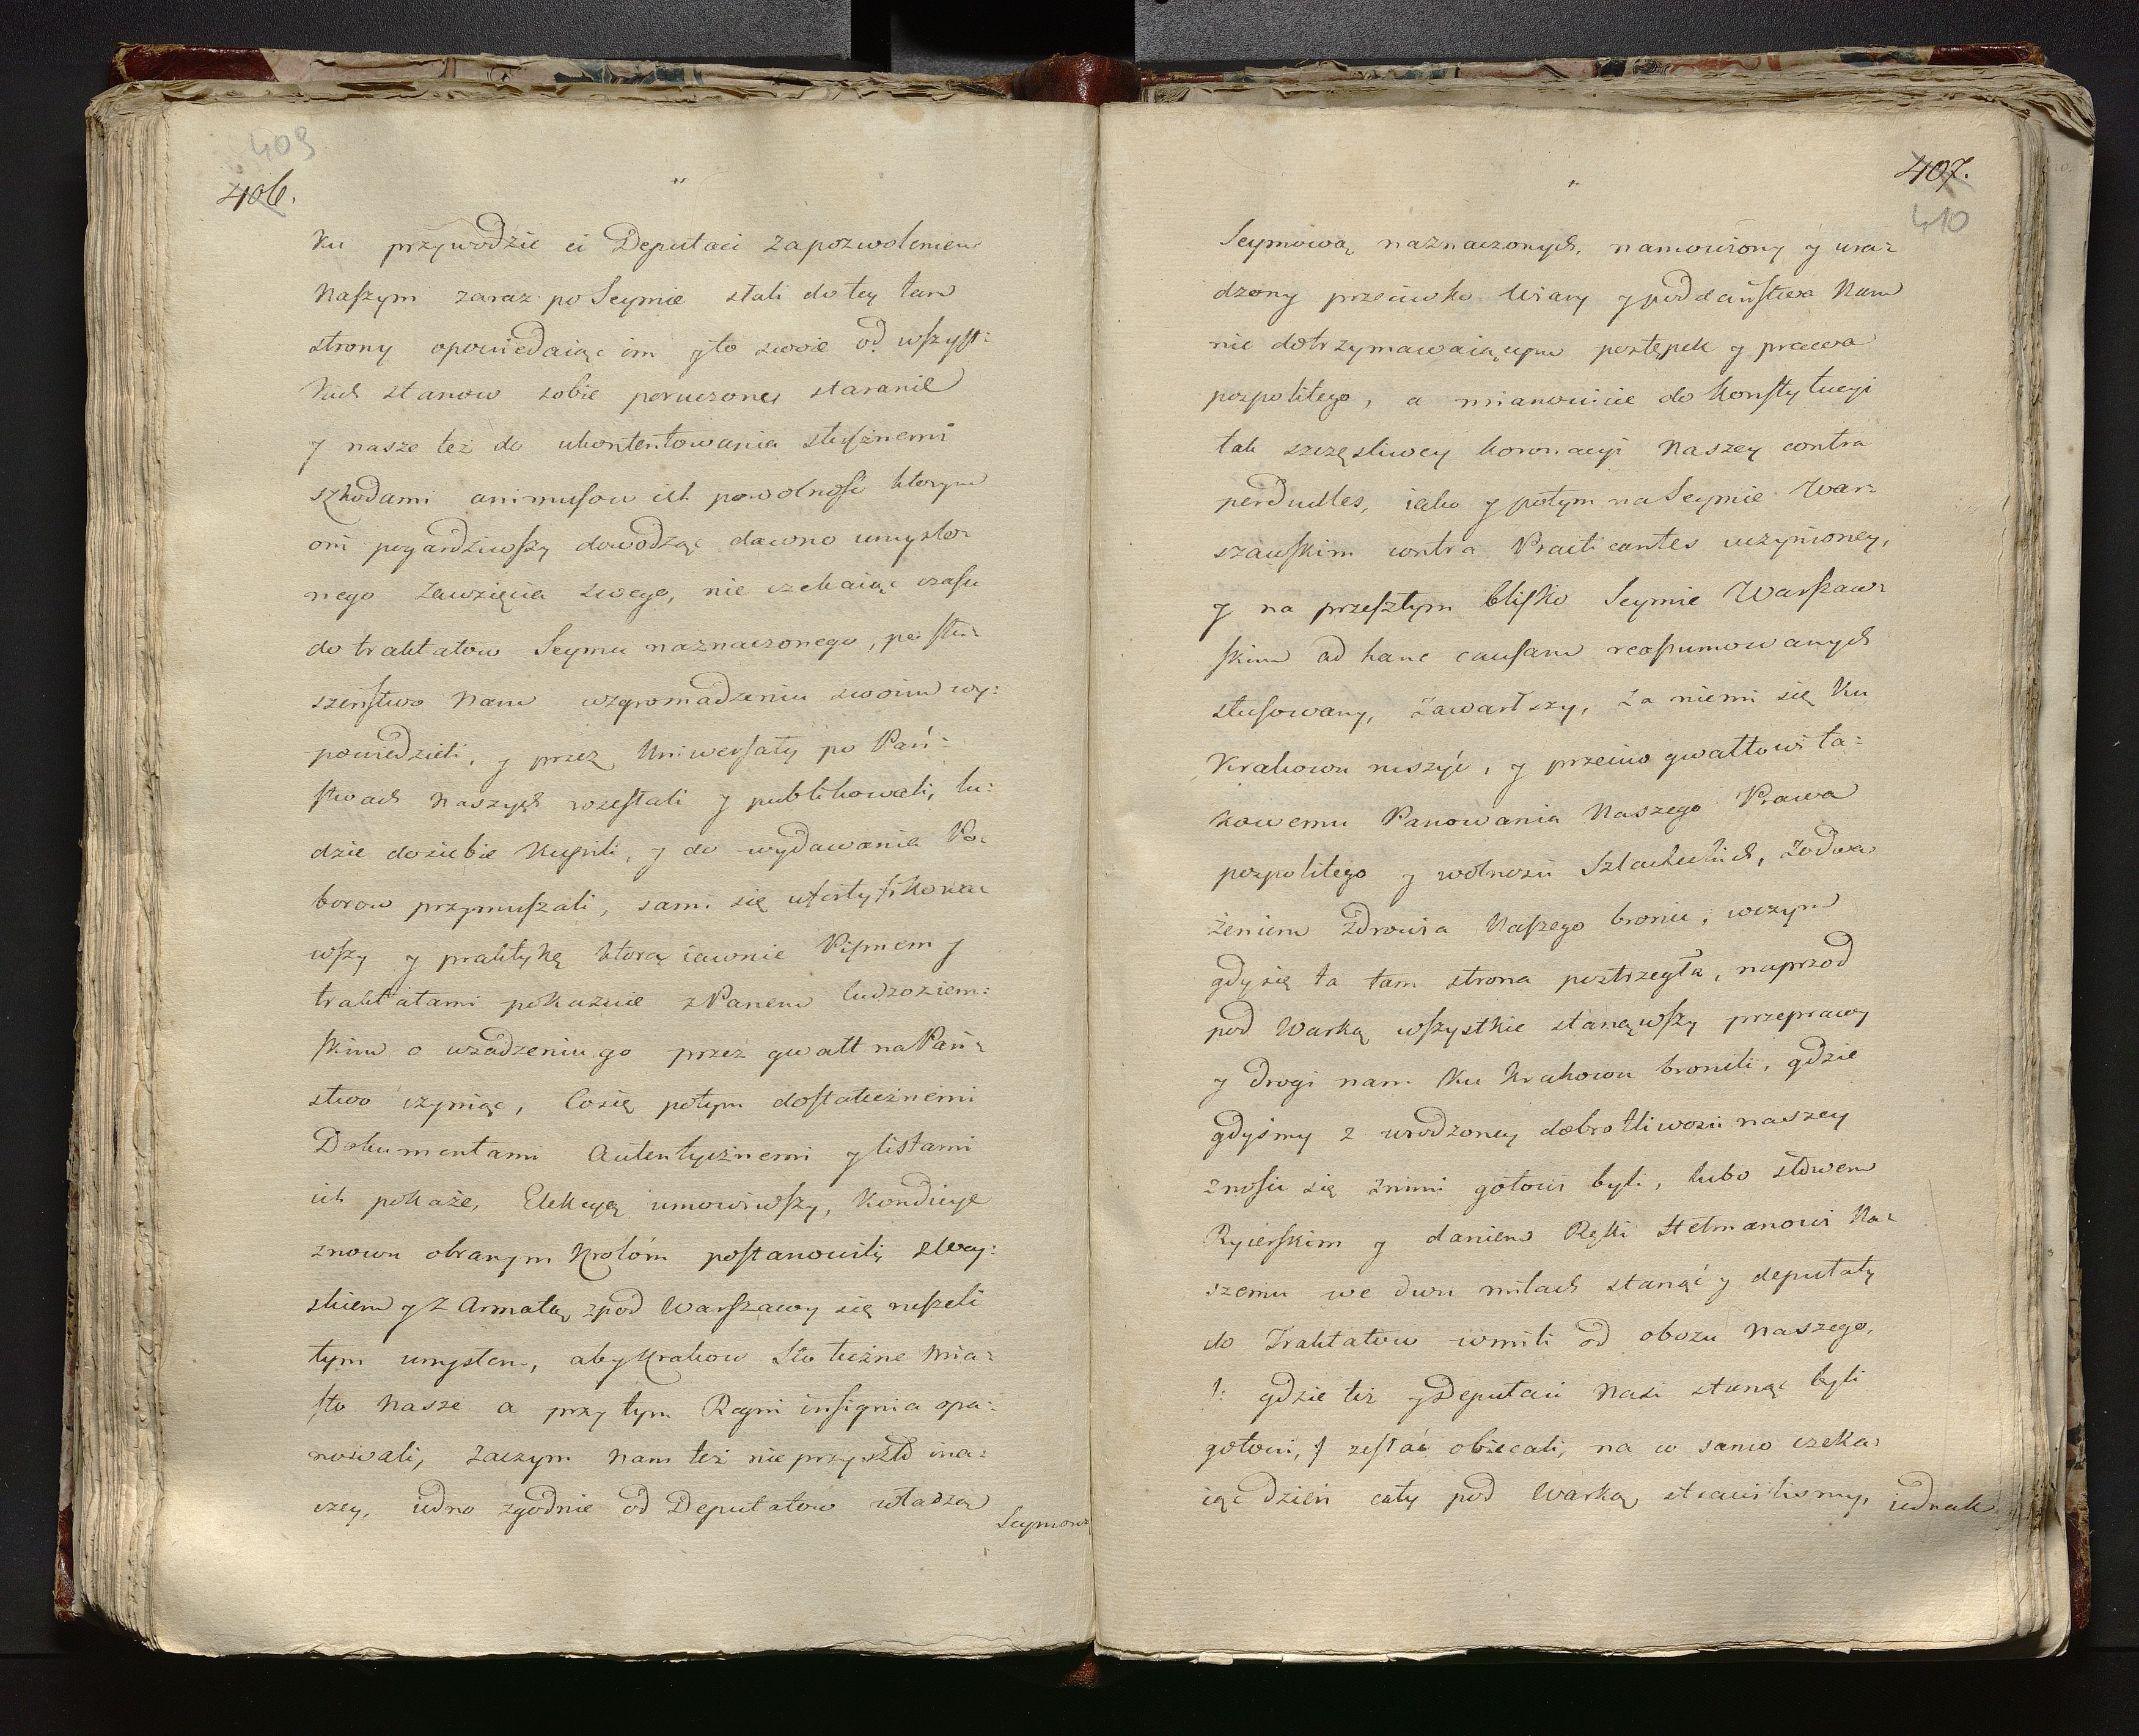 409
406.
"
Ku przywodzie ci Deputaci zapozwoleniem
Naszym zaraz po Seymie słali do tey tam
strony opowiedaiąc im y to swoie od wszyst:
kich stanow sobie poruczone staranie
y nasze też do ukontentowania słusznemi
szkodami animusow ich powolność ktorym
oni pogardziwszy dowodząc dawno umyslo:
nego zawzięcia swego, nie czekaiąc czasu
do traktatow Seymu naznaczonego, posłu:
szeństwo Nam wzgromadzeniu swoim wy:
powiedzieli, y przez Uniwersały po Pań:
stwach Naszych rozesłali y publikowali, lu:
dzie do siebie Kupili, y do wydawania Po:
borow przymuszali, sami się ufortyfikowa:
wszy y praktykę ktorą iawnie Pismem y
traktatami pokazuie z Panem cudzoziem:
skim o wsadzeniu go przez gwałt na Pań:
stwo czyniąc, Co się potym dostatecznemi
Dokumentami Autentycznemi y listami
ich pokaże, Elekcyą umowiwszy, Kondicye
znowu obranym Krolóm postanowili, z Woy:
skiem y z Armatą zpod Warszawy się ruszeli
tym umysłem, aby Krakow Stołeczne Mia:
sto Nasze a przy tym Regni insignia opa:
nowali, zaczym nam też nie przyszło ina:
czey, iedno zgodnie od Deputatow władzą
Seymową
407.
410
"
Seymową naznaczonych, namowiony y ura:
dzony przeciwko Wiary y poddaństwa Nam
nie dotrzymawaiącym postępek y prawa
pospolitego, a mianowicie do Konstytucyi
tak szczęsliwey koronacyi Naszey contra
perduelles, iako y potym na Seymie War:
szawskim contra Practicantes uczynioney,
y na przeszłym blisko Seymie Warszaw:
skim ad hanc causam reassumowanych
stusowany, zawarłszy, za niemi się Ku
Krakowu ruszyć, y przeciw gwałtowi ta:
kowemu Panowania Naszego Prawa
pospolitego y wolności Szlacheckich, zodwa:
żeniem zdrowia Naszego bronić, wczym
gdy się ta tam strona postrzegła, naprzod
pod Warką wszystkie stanąwszy przeprawy
y drogi nam Ku Krakowu bronili, gdzie
gdyśmy z wrodzoney dobrotliwości naszey
znosić się znimi gotowi byli, lubo słowem
Rycerskim y daniem Ręki Hetmanowi Na:
szemu we dwu milach stanąć y deputaty
do Traktatow wmili od obozu Naszego,
/: gdzie też y Deputaci Nasi stanąć byli
gotowi, :/ zesłać obiecali, na co samo czeka:
iąc dzień cały pod Warką strawilismy, iednak